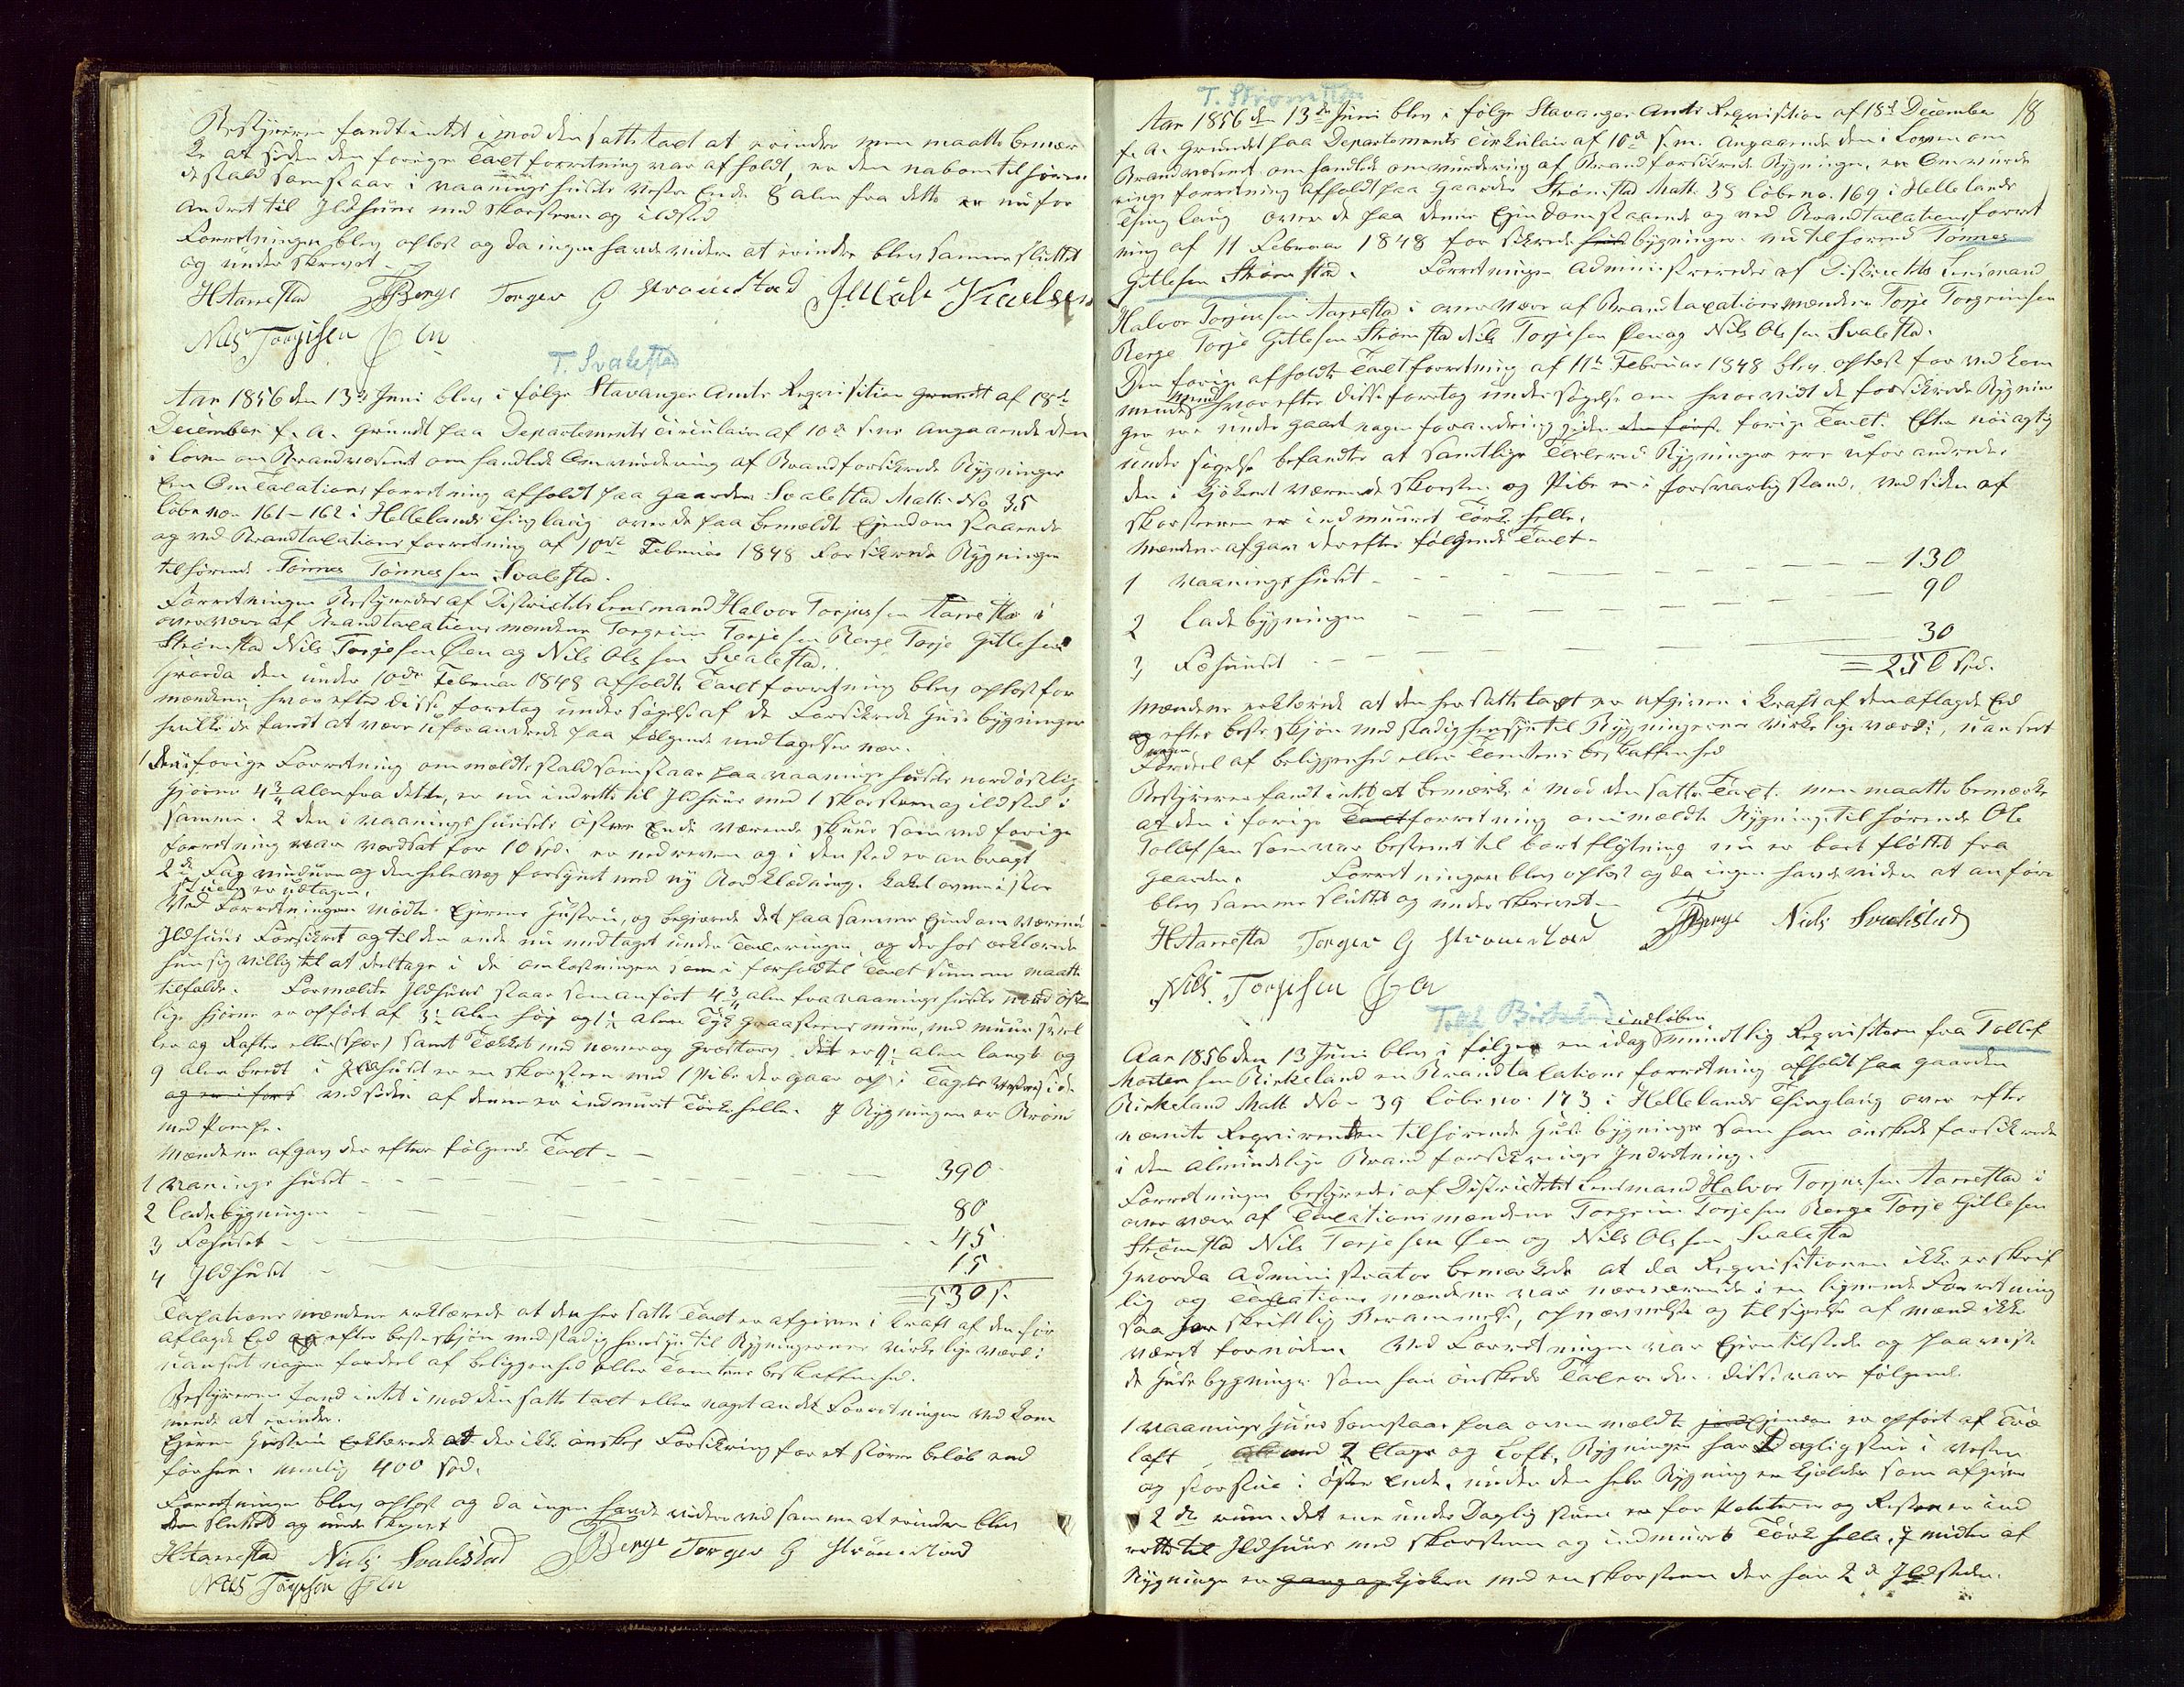 Bestyreren fandt intet imod den satte taxt at erindre men maatte bemær
ke at siden den forrige Taxtforretning var afholdt, er den naboen tilhøren
de stald som staar i vaaningshusets vestre Ende 8 alen fra dette er nu for
andret til Ildhuus med skorsteen og ildsted
Forretningen blev oplæst og da ingen havde videre at erindre blev samme sluttet
og underskrevet
HAarrestad TTBerge Torger G Strømestad
Nils Torjesen Øen
T. Svalestad
Aar 1856 den 13de Juni blev i følge Stavanger Amts Reqvisition grundt af 18de
December f. A. grundt paa Departements Circulaire af 10de s.m. angaaende den
i loven om Brandvæsenet omhandlede Omvurdering af Brandforsikrede Bygninger
en OmTaxationsforretning afholdt paa gaarden Svalestad Matr. No 35
løbe no 161-162 i Hellelands Thinglaug over de paa bemeldte Ejendom staaende
og ved Brandtaxationsforretning af 10de Februar 1848 forsikrede Bygninger
tilhørende Tønnes Tønnessen Svalestad.
Forretningen Bestyredes af Districtets Lensmand Halvor Torjussen Aarrestad i
overvær af Brandtaxationsmændene Torgrim Torjesen Berge Torje Gitlesen
Strømstad Nils Torjesen Øen og Nils Olssen Svalestad.
Hvorda den under 10de Februar 1848 afholdte Taxtforretning blev oplæst for
mændene, hvorefter disse foretog undersøgelse af de Forsikrede Huusbygninger
hvilke de fandt at være uforandrede paa følgende undtagelser nær.
1 den i forrige Forretning ommeldte stald som staar paa vaaningshusets nordøstlig
hjørne 4¾ Alen fra dette, er nu indrettet til Ildhuus med 1 skorsteen og ildsted i
samme. 2 den i vaaningshuusets østre Ende værende skuur som ved forrige
forretning var værdsat for 10 Spd. er nedreven og i dens sted er anbragt
2de Fag vinduer og den hele væg forsynet med ny Bordklædning. Kakelovnen i stor
stuen er udtagen.
Ved Forretningen mødte Ejerens Hustru, og begjærede det paa samme Ejendom værende
Ildhuus Forsikret og til den ende nu medtaget under Taxeringen og derhos erklærede
hun sig villig til at deeltage i de omkostninger som i forhold til Taxt summen maatte
tilfalde. Formeldte Ildhuus staar som anført 4¾ alen fra vaaningshusets nordøst
lige hjørne er opført af 3½ Alen høj og 1½ Alen Tyk graasteens muur, med muursvil
ler og Rafter eller (sper) samt Tækket med næver og græstorv. det er 9½ alen langt og
9 alen bredt i Ildhuset er en skorsteen med 1 Pibe der gaar op i Tagets vestre side
og er i fors ved siden af denne er indmuret Tørkehelle. I Bygningen er Brønd
med Pompe.
Mændene afgav derefter følgende Taxt
1 Vaaningshuset 390
2 Ladebygningen 80
3 Fæhuset 45
4 Ildhuset 15
=530 s.
Taxationsmændene erklærede at den her satte Taxt er afgiven i Kraft af den før
aflagde Eed og efter beste skjøn med stadig hensyn til Bygningernes virkelige værdi
uanseet nogen fordeel af beliggenhed eller Tomtens beskaffenhed.
Bestyreren fand intet imod den satte taxt eller noget andet Forretningen vedkom
mende at erindre.
Ejerens Hustru Erklærede at der ikke ønskes Forsikring for et større beløb end
før her. nemlig 400 Spd.
Forretningen blev oplæst og da ingen havde videre ved samme at erindre blev
den sluttet og underskrevet
HAarrestad Niels Svalestad TTBerge Torger G Strømestad
Nils Torjesen Øen
T. Strømstad
18
Aar 1856 den 13de Juni blev i følge Stavanger Amts Reqvisition af 18de December
f. A. grundet paa Departements Cirkulair af 10de s.m. Angaaende den i Loven om
Brandvæsenet omhandlede omvurdering af Brandforsikrede Bygninger, en Omvurde
rings forretning afholdt paa Gaarden Strømstad Matr. 38 løbe no. 169 i Hellelands
Thinglaug over de paa denne Ejendom staaende og ved Brandtaxationsforret
ning af 11 Februar 1848 forsikrede huusbygninger nu tilhørende Tønnes
Gitlesen Strømstad. Forretningen Administreredes af Districtets Lensmand
Halvor Torjussen Aarrestad i overvær af Brandtaxationsmændene Torje Torgrimsen
Berge Torje Gitlesen Strømstad Nils Torjesen Øen og Nils Olssen Svalestad.
Den forrige afholdte Taxtforretning af 11te Februar 1848 blev oplæst for vedkom
mende mænd hvorefter disse foretog undersøgelse om hvorvidt de forsikrede Bygnin
ger ere undergaaet nogen forandring siden den først forrige Taxt. Efter nøiagtig
undersøgelse befandtes at samtlige Taxerede Bygninger ere uforandrede
den i Kjøkenet værende skorsten og Pibe er i forsvarlig stand. Ved siden af
skorstenen er indmuuret Tørk helle.
Mændene afgav derefter følgende Taxt
1 Vaaningshuset 130
2 Ladebygningen 90
3 Fæhuuset 30
=250 Spd.
Mændene erklærede at den her satte taxt er afgiven i Kraft af den aflagde Eed
og efter beste skjøn med stadig hensyn til Bygningernes virkelige værdi, uanseet
nogen Fordeel af beliggenhed eller Tomtens beskaffenhed
Bestyreren fandt intet at bemærke imod den satte Taxt. men maatte bemærke
at den i forrige Taxtforretning ommeldte Bygning tilhørende Ole
Tollefsen som var bestemt til bortflytning nu er bortflyttet fra
gaarden. Forretningen blev oplæst og da ingen havde videre at anføre
blev samme sluttet og underskrevet
HAarrestad Torger G Strømestad TTBerge Niels Svalestad
Nils Torjesen Øen
Tollef Birkeland
Aar 1856 den 13 Juni blev i følge en idag indløben mundtlig Reqvisition fra Tollef
Mortensen Birkeland en Brandtaxationsforretning afholdt paa gaarden
Birkeland Matr No 39 Løbe no. 173 i Hellelands Thinglaug over efter
nævnte Reqvirenten tilhørende Huusbygninger som han ønskede forsikrede
i den Almindelige Brandforsikrings Indretning.
Forretningen bestyredes af Districtets Lensmand Halvor Torjussen Aarrestad i
overvær af Taxationsmændene Torgrim Torjesen Berge Torje Gitlesen
Strømstad Nils Torjesen Øen og Nils Olssen Svalestad
Hvorda Administrator bemærkede at da Reqvisitionen ikke er skrift
lig og Taxationsmændene var nærværende i en lignende Forretning
saa har skriftlig Berammelse, opnævnelse og tilsigelse af mænd ikke
været fornøden. Ved Forretningen var Ejeren tilstede og paaviste
de Huusbygninger som han ønskede Taxerede. disse vare følgende.
1 Vaanings Huus som staar paa ovenmeldte jord Ejendom er opført af Træ
laft med 2 Etager og Loft, Bygningen har Dagligstue i vestre
og storstue i øster Ende, under den hele Bygning er Kjælder som afgiver
2de rum. det ene under Daglig stuen er for Poteter og Resten er ind
rettet til Ildhuus med skorsteen og indmuret Tørkhelle. I midten af
Bygningen er gang og Kjøken med en skorsteen der har 2de Ildsteder.